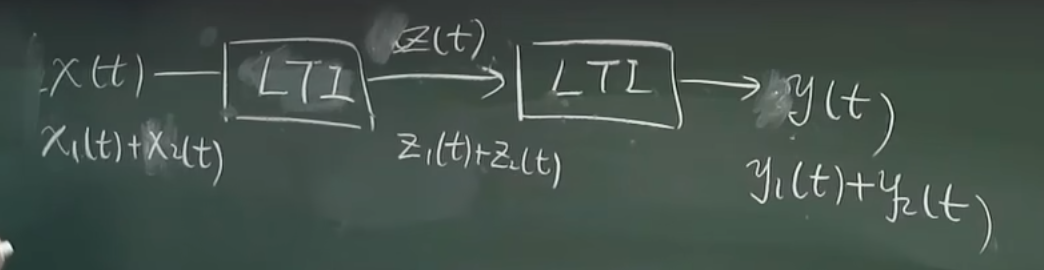 x(t) LTI z(t) LTI y(t)
x₁(t)+x₂(t) z₁(t)+z₂(t) y₁(t)+y₂(t)